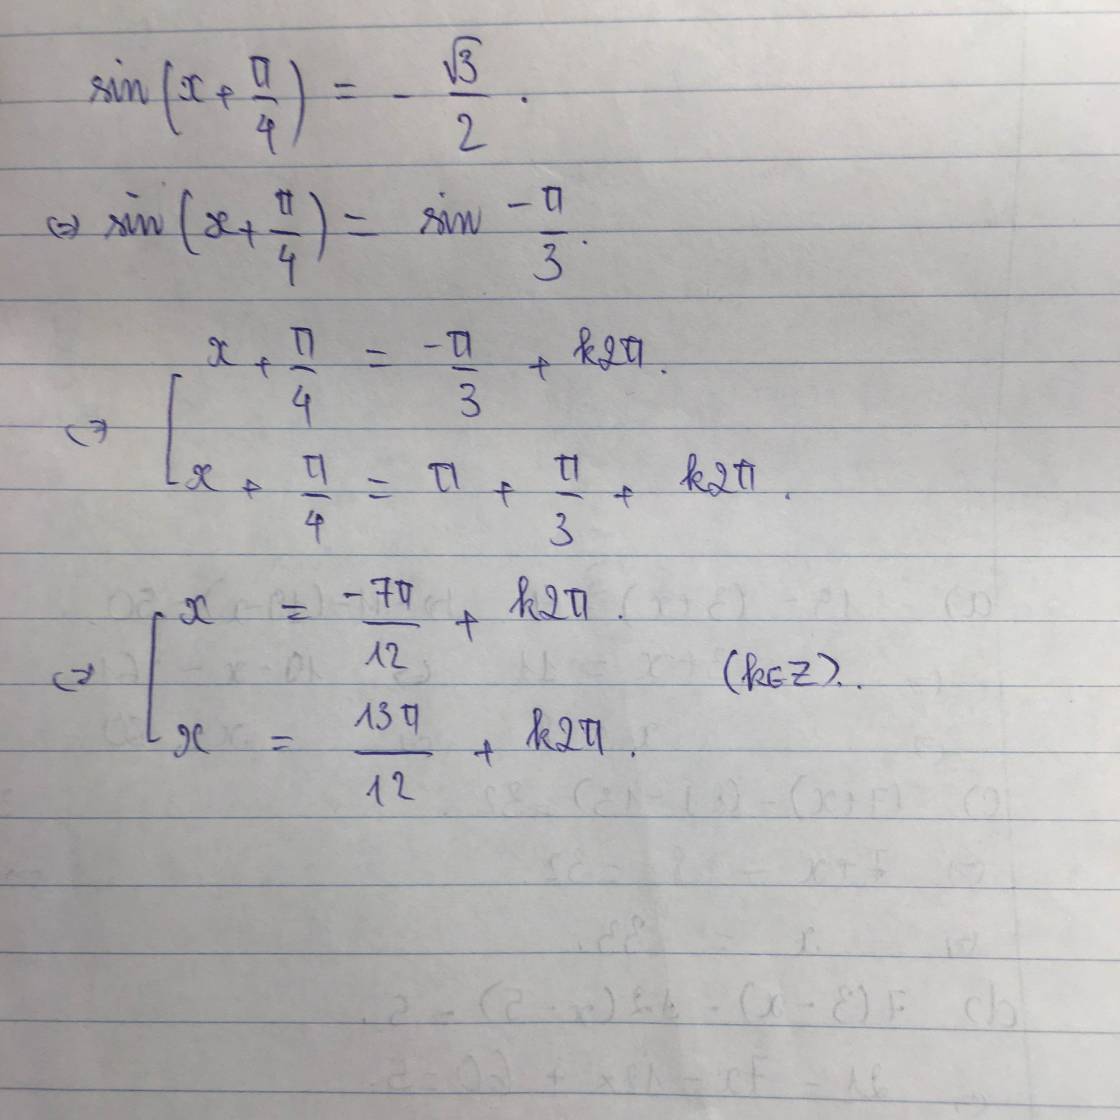 sin(x + π/4) = - √3/2 .
⇔ sin(x + π/4) = sin -π/3 .
⇔ [ x + π/4 = -π/3 + k2π .
x + π/4 = π + π/3 + k2π .
⇔ [ x = -7π/12 + k2π .
(k∈Z)..
x = 13π/12 + k2π .